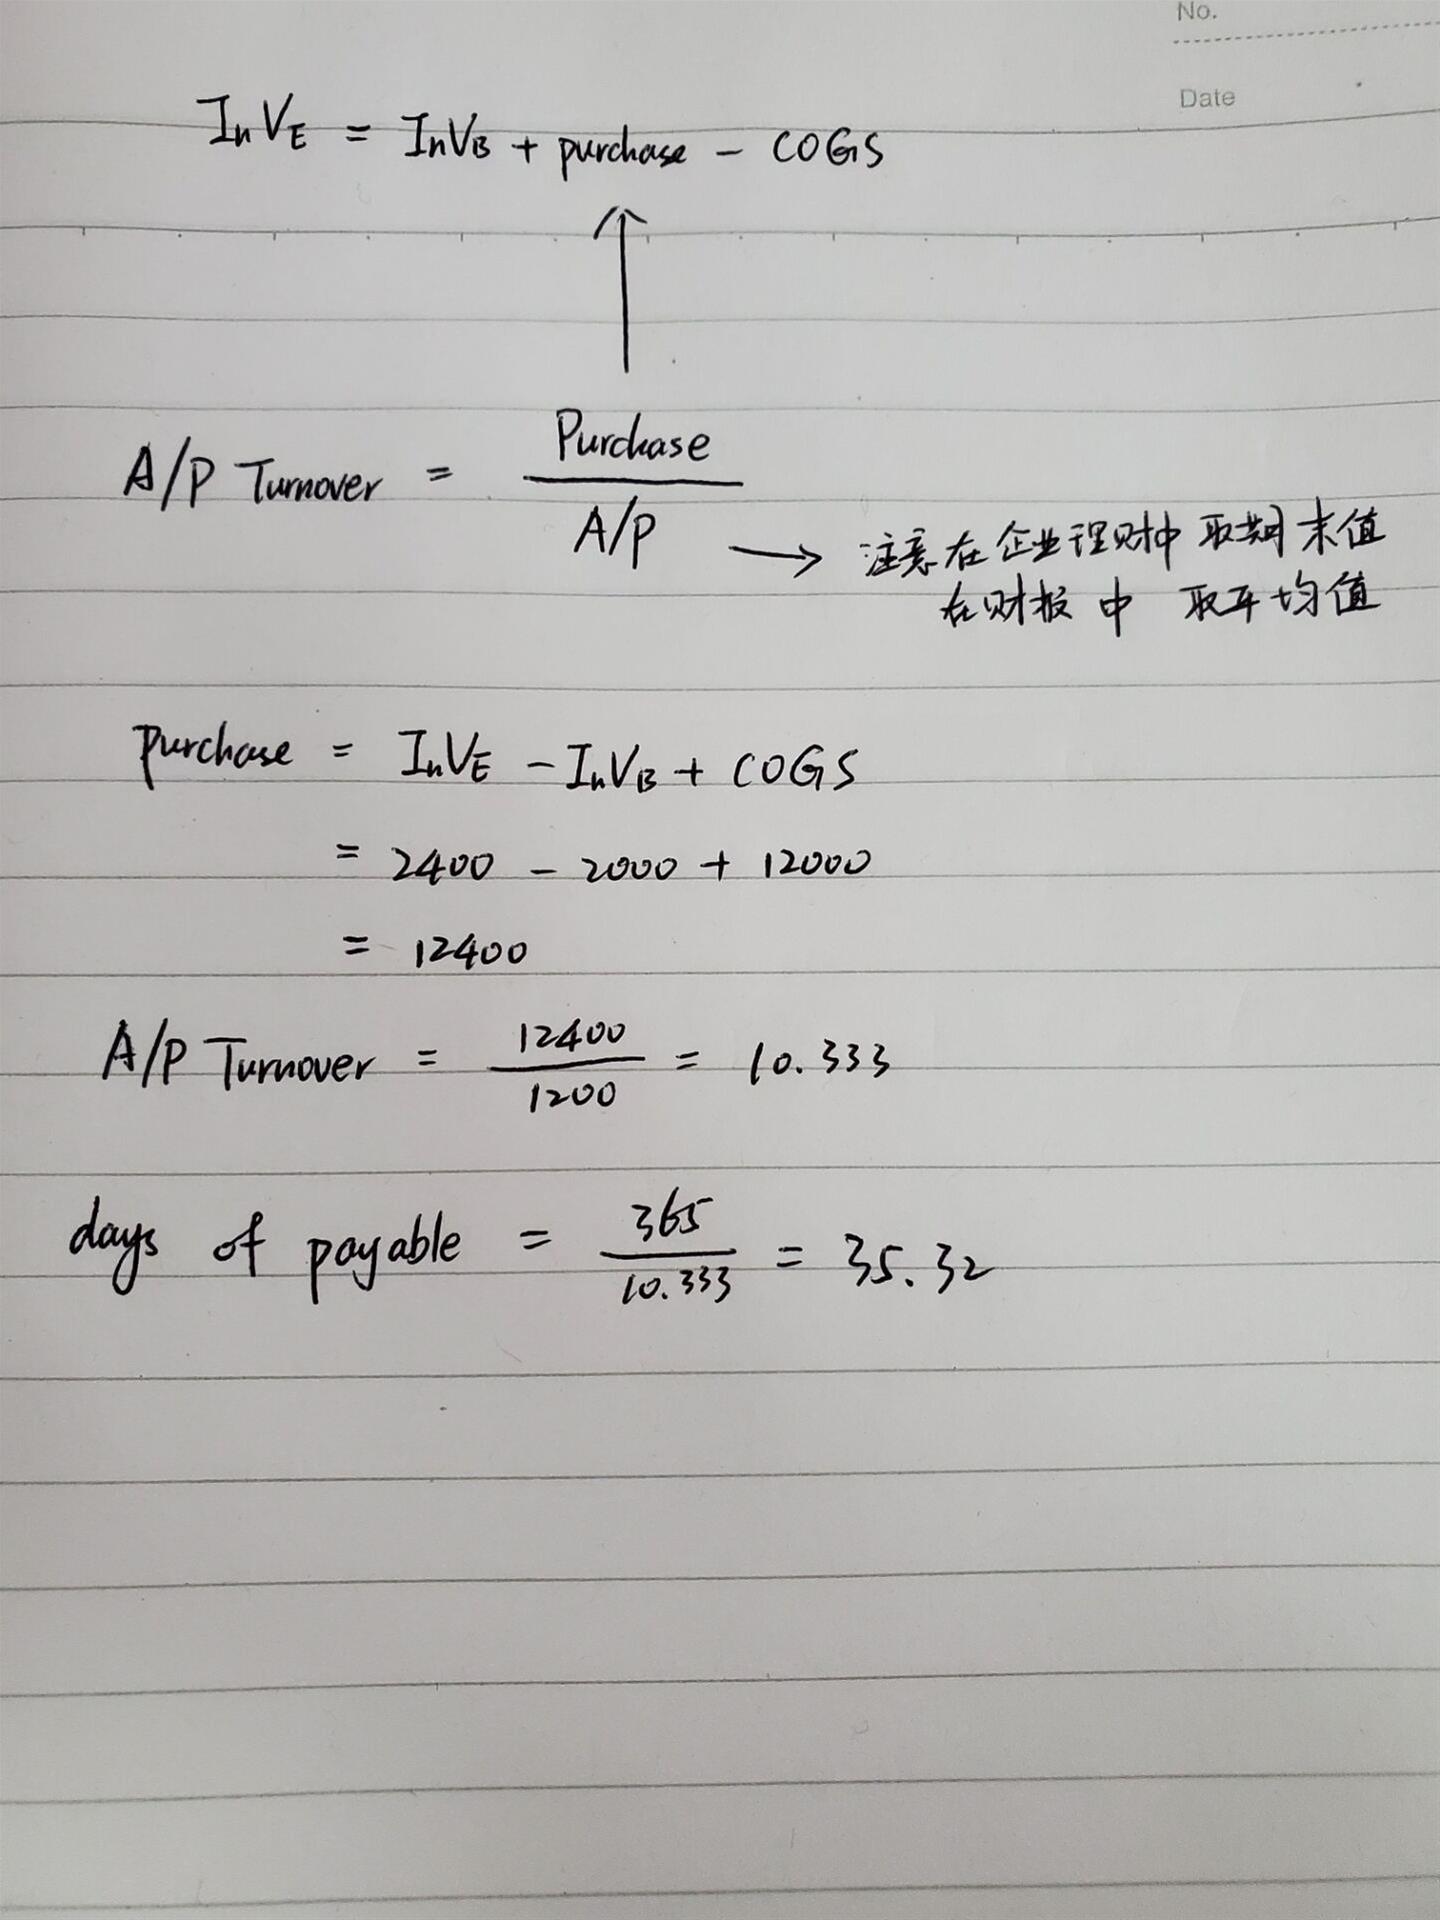 No.
Date
InVE = InVB + purchase - COGS
A/P Turnover = Purchase / A/P
注意在企业理财中 取期末值
在财报中 取平均值
purchase = InVE - InVB + COGS
= 2400 - 2000 + 12000
= 12400
A/P Turnover = 12400 / 1200 = 10.333
days of payable = 365 / 10.333 = 35.32